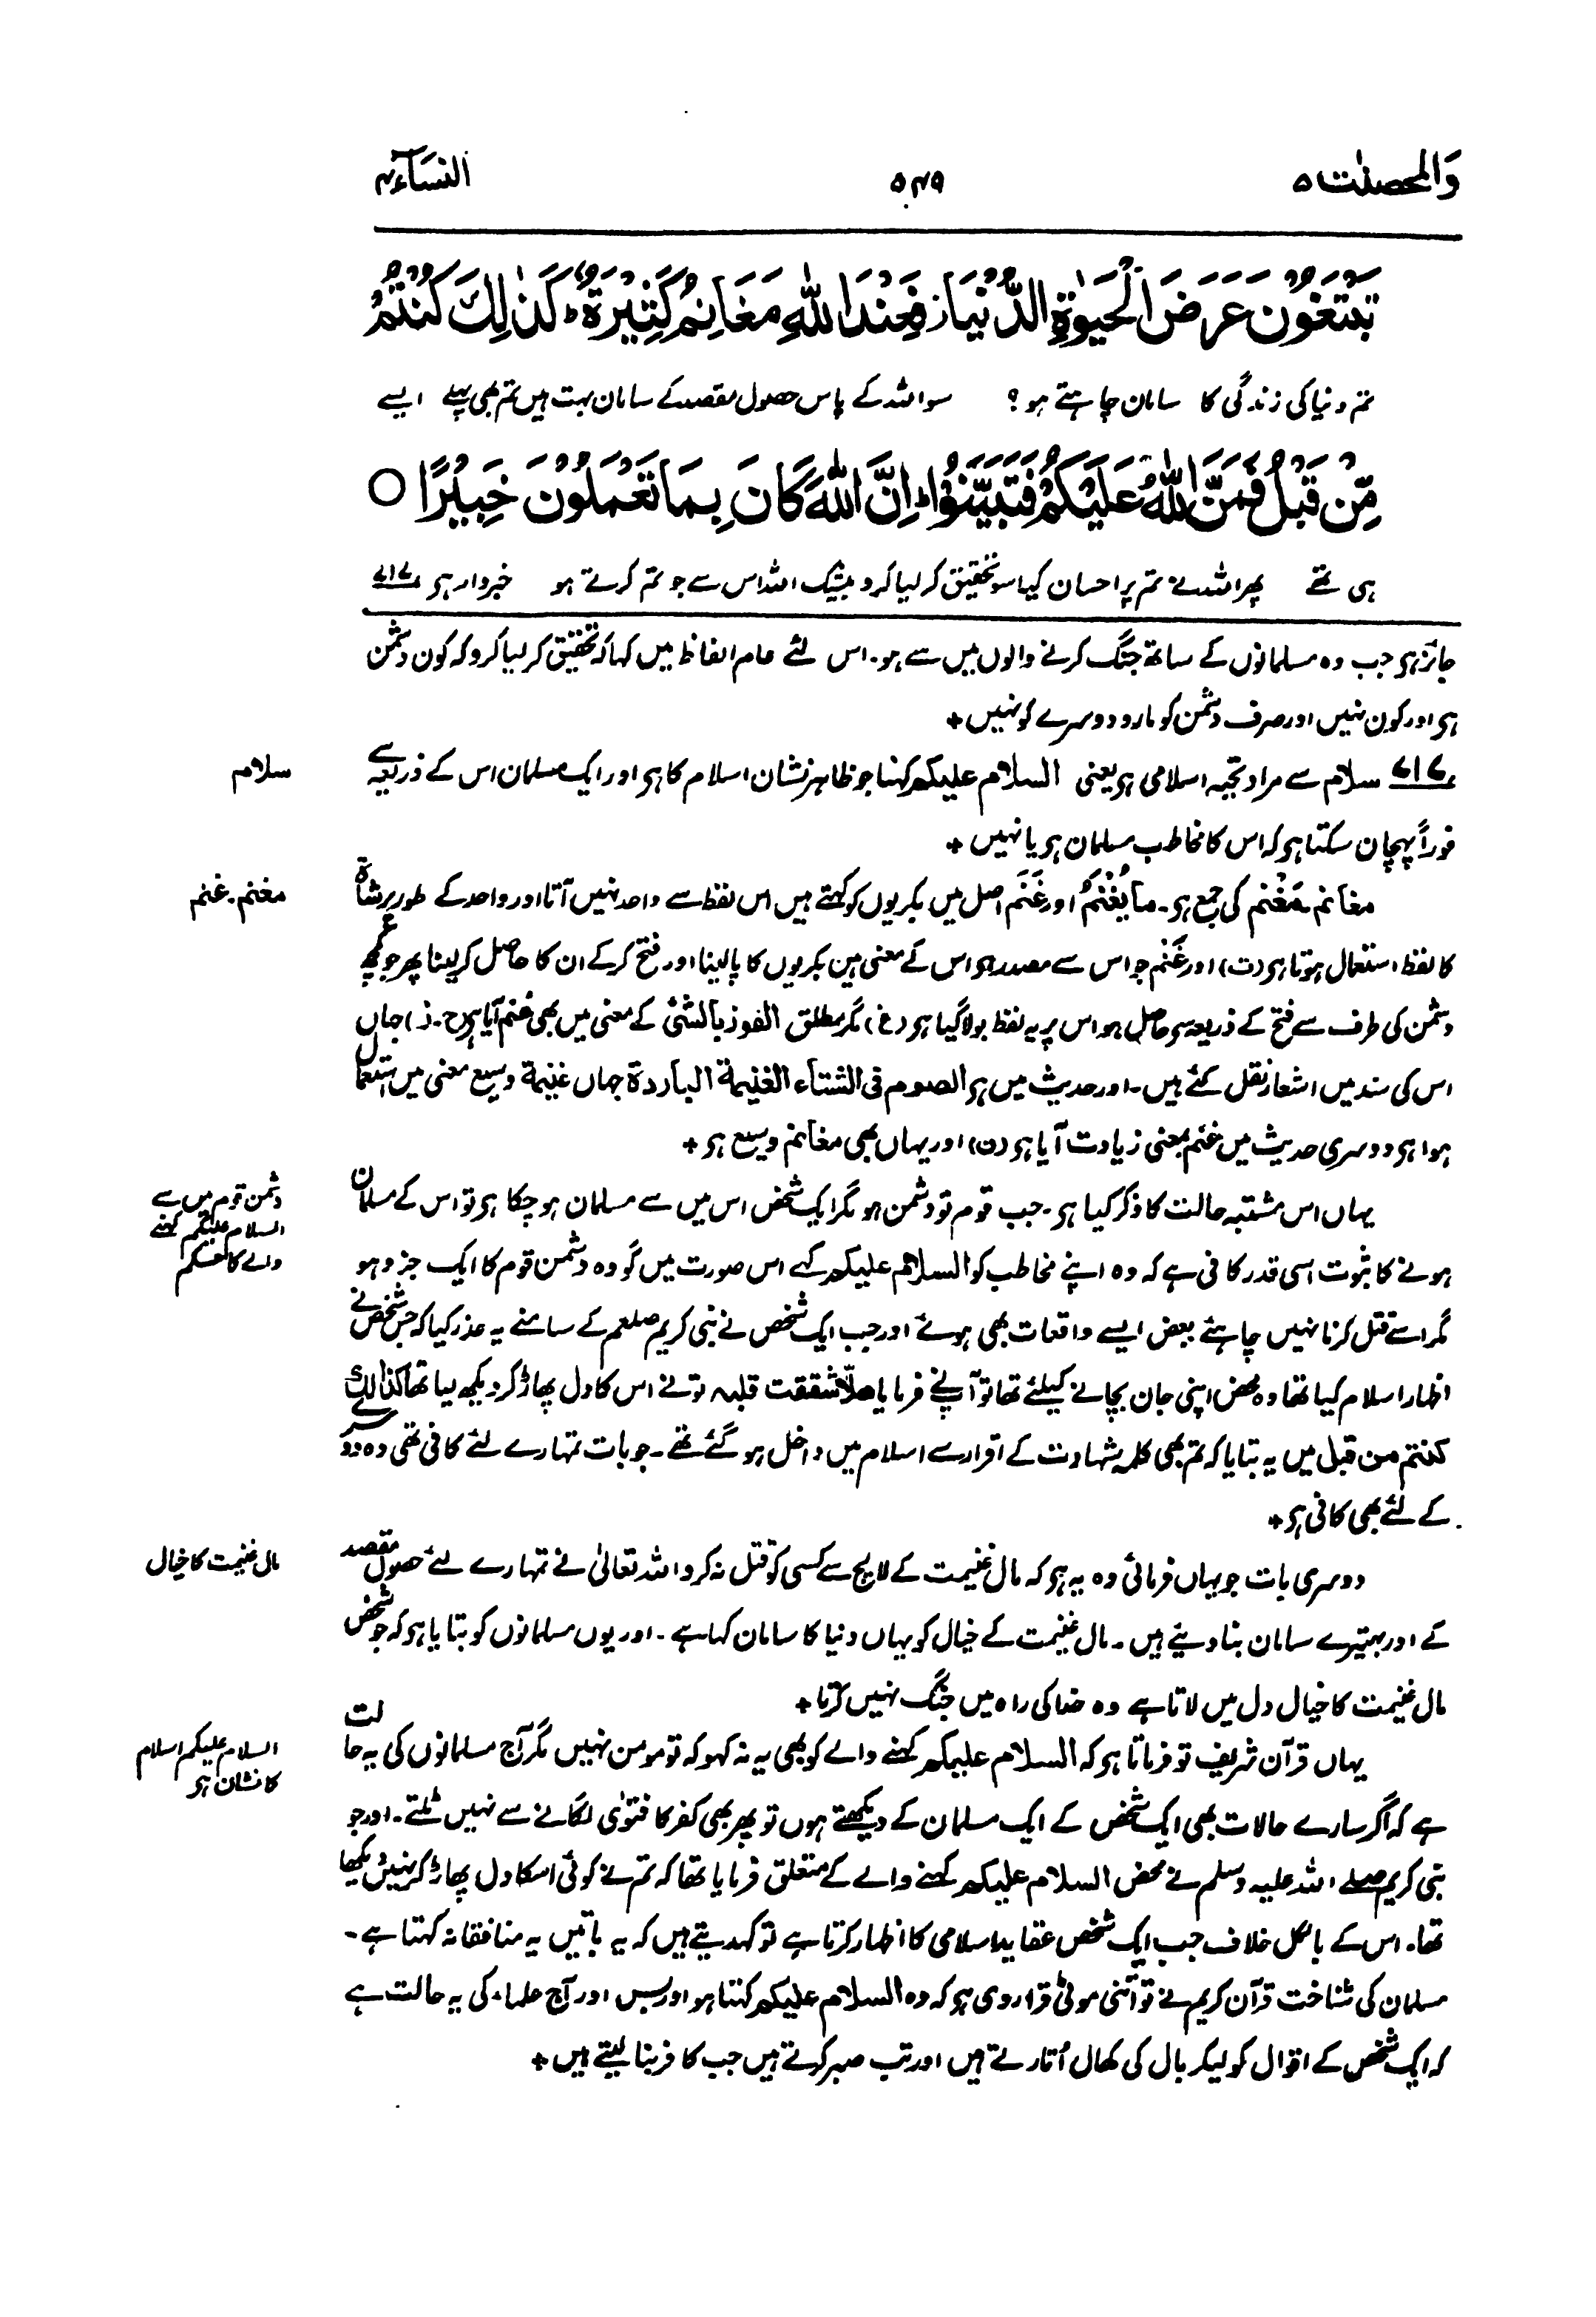 والمحصنٰت ۵
۵۴۹
النسآء ۴
تَبْتَغُوْنَ عَرَضَ الْحَيٰوةِ الدُّنْيَا ز فَعِنْدَ اللّٰهِ مَغَانِمُ كَثِيْرَةٌ ؕ كَذٰلِكَ كُنْتُمْ
تم دنیا کی زندگی کا سامان چاہتے ہو؟ سو اللہ کے پاس حصول مقصد کے سامان بہت ہیں تم بھی پہلے ایسے
مِّنْ قَبْلُ فَمَنَّ اللّٰهُ عَلَيْكُمْ فَتَبَيَّنُوْا ؕ اِنَّ اللّٰهَ كَانَ بِمَا تَعْمَلُوْنَ خَبِيْرًا ○
ہی تھے پھر اللہ نے تم پر احسان کیا سو تحقیق کر لیا کرو بیشک اللہ اس سے جو تم کرتے ہو خبردار ہو ۷۱۷
جائز ہو جب وہ مسلمانوں کے ساتھ جنگ کرنے والوں میں سے ہو۔ اس لئے عام الفاظ میں کہا کہ تحقیق کر لیا کرو کہ کون دشمن
ہو اور کون نہیں اور صرف دشمن کو مارو دوسرے کو نہیں +
۷۱۷ سلام سے مراد تحیہ اسلامی ہو یعنی السلام علیکم کہنا جو ظاہر نشان اسلام کا ہو اور ایک مسلمان اس کے ذریعہ سے
سلام
فوراً پہچان سکتا ہو کہ اس کا مخاطب مسلمان ہو یا نہیں +
مغانم۔ مَغْنَم کی جمع ہو۔ ما یُغْنَمُ اور غَنَم اصل میں بکریوں کو کہتے ہیں اس لفظ سے واحد نہیں آتا اور واحد کے طور پر شاۃ
مغنم۔ غنم
کا لفظ استعمال ہوتا ہو (ت) اور غُنم جو اس سے مصدر ہو اس کے معنی ہیں بکریوں کا پالینا اور فتح کرکے ان کا حاصل کر لینا پھر جو کچھ
دشمن کی طرف سے فتح کے ذریعہ سے حاصل ہو اس پر یہ لفظ بولا گیا ہو (غ) مگر مطلق الفوز بالشئ کے معنی میں بھی غُنم آیا ہو (ج۔ ز) جہاں
اس کی سند میں اشعار نقل کئے ہیں۔ اور حدیث میں ہو الصوم فی الشتاء الغنیمة الباردة جہاں غنیمة وسیع معنی میں استعمال
ہوا ہو دوسری حدیث میں غنم بمعنی زیادت آیا ہو (ن) اور یہاں بھی مغانم وسیع ہو +
یہاں اس مشتبہ حالت کا ذکر کیا ہو۔ جب قوم تو دشمن ہو مگر ایک شخص اس میں سے مسلمان ہو چکا ہو تو اس کے مسلمان
دشمن قوم میں سے
السلام علیکم کہنے
والے کا حکم
ہونے کا ثبوت اسی قدر کافی ہے کہ وہ اپنے مخاطب کو السلام علیکم کہے اس صورت میں گو وہ دشمن قوم کا ایک جزو ہو
مگر اسے قتل کرنا نہیں چاہئے بعض ایسے واقعات بھی ہوئے اور جب ایک شخص نے نبی کریم صلعم کے سامنے یہ عذر کیا کہ جس شخص نے
اظہار اسلام کیا تھا وہ محض اپنی جان بچانے کیلئے تھا تو آپ نے فرمایا ھلّا شققت قلبہ تو نے اس کا دل پھاڑ کر دیکھ لیا تھا کذالک
کنتم من قبل میں یہ بتایا کہ تم بھی کلمہ شہادت کے اقرار سے اسلام میں داخل ہو گئے تھے۔ جو بات تمہارے لئے کافی تھی وہ دوسرے
کے لئے بھی کافی ہو +
دوسری بات جو یہاں فرمائی وہ یہ ہو کہ مال غنیمت کے لالچ سے کسی کو قتل نہ کرو اللہ تعالیٰ نے تمہارے لئے حصول مقصد
مال غنیمت کا خیال
کے اور بہتیرے سامان بنا دیئے ہیں۔ مال غنیمت کے خیال کو یہاں دنیا کا سامان کہا ہے۔ اور یوں مسلمانوں کو بتایا ہو کہ جو شخص
مال غنیمت کا خیال دل میں لاتا ہے وہ خدا کی راہ میں جنگ نہیں کرتا +
یہاں قرآن شریف تو فرماتا ہو کہ السلام علیکم کہنے والے کو بھی یہ نہ کہو کہ تو مومن نہیں مگر آج مسلمانوں کی یہ حالت
السلام علیکم اسلام
کا نشان ہو
ہے کہ اگر سارے حالات بھی ایک شخص کے ایک مسلمان کے دیکھتے ہوں تو پھر بھی کفر کا فتوٰی لگانے سے نہیں ٹلتے۔ اور جو
نبی کریم صلے اللہ علیہ وسلم نے محض السلام علیکم کہنے والے کے متعلق فرمایا تھا کہ تم نے کوئی اسکا دل پھاڑ کر نہیں دیکھا
تھا۔ اس کے بالکل خلاف جب ایک شخص عقاید اسلامی کا اظہار کرتا ہے تو کہدیتے ہیں کہ یہ باتیں یہ منافقانہ کہتا ہے۔
مسلمان کی شناخت قرآن کریم نے تو اتنی موٹی قرار دی ہو کہ وہ السلام علیکم کہتا ہو اور بس اور آج علماء کی یہ حالت ہے
کہ ایک شخص کے اقوال کو لیکر بال کی کھال اُتارتے ہیں اور تب صبر کرتے ہیں جب کافر بنا لیتے ہیں +